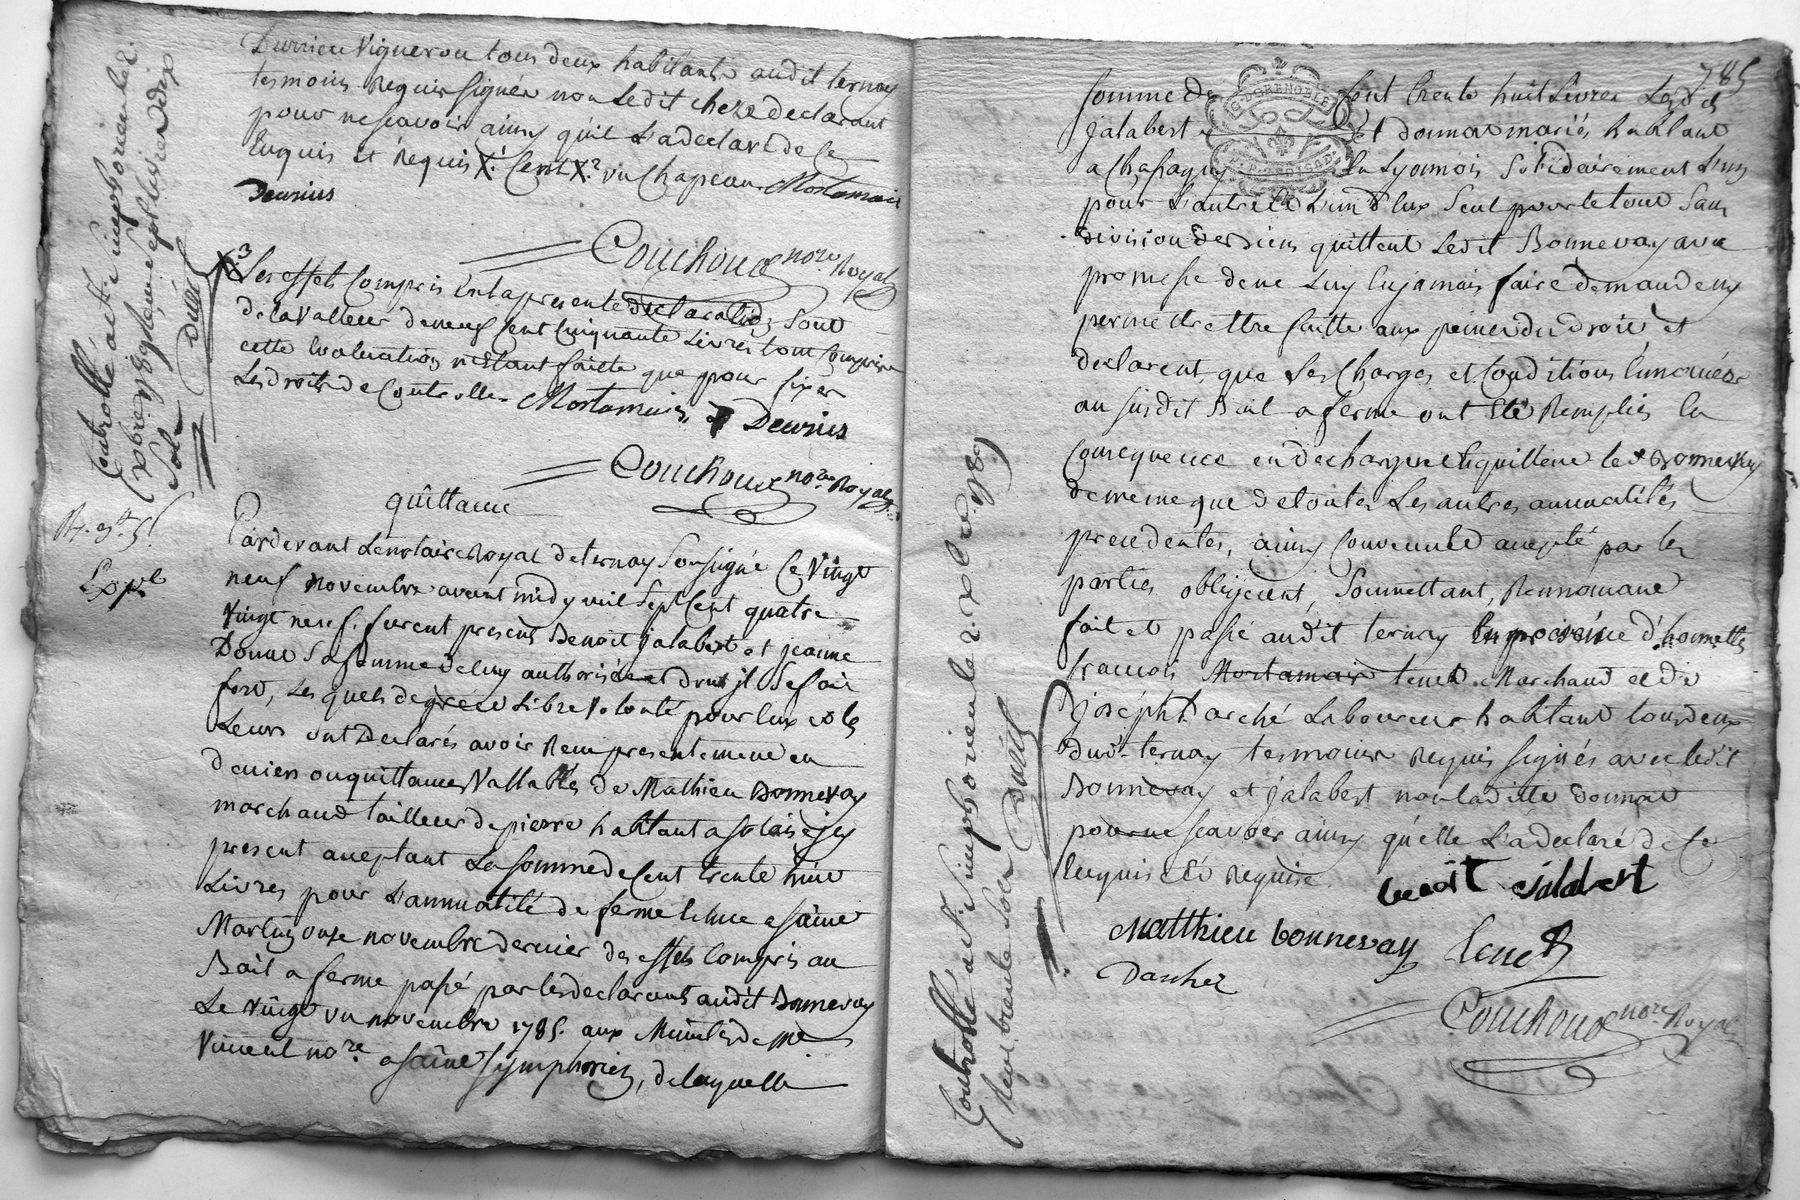 Durrieu Vigneron tous deux habitants audit ternay
tesmoins Requis signés non Ledit cheze declarant
pour ne scavoir ainsy qu'il L'a declaré de Ce
Enquis et Requis X.1 Cent X.2 vn Chapeau Mortamais
Deurius
Couchoud nore Royal
X.3 Les effets Compris En la presente declaration sont
de la Valleur de neuf Cent Cinquante Livres tout compris
cette Evaluation n'estant faitte que pour fixer
Les droits de Controlle Mortamais Deurius
Couchoud nore Royal
Controllé a St Simphorien le 2.
xbre 1789
sols
quittance
Expl
Pardevant Le notaire Royal de ternay soussigné Ce Vingt
neuf novembre avant midy mil sept Cent quatre
Vingt neuf. furent presents Benoit jalabert et jeanne
Donnat sa femme de luy authorisée et dont jl se fait
fort, Les quels de gré et Libre Volonté pour Eux et Les
Leurs ont Declarés avoir Reçu presentement en
deniers ou quittances Vallables de Mathieu Bonnevay
marchand tailleur de pierre habitant a solaise jcy
present aceptant La somme de Cent trente huit
Livres pour L'annualité de ferme Echue a saint
Martin onze novembre dernier des effets Compris au
Bail a ferme passé par les declarants audit Bonnevay
Le Vingt vn novembre 1785. aux Minutes de me
Vincent nore a saint Symphorien, de laquelle
785
somme de Cent trente huit Livres Lesds
jalabert et donnat mariés habitant
a Chassagny En Lyonnois solidairement L'un
pour L'autre et L'un d'Eux seul pour le tout sans
division de Biens quittent Ledit Bonnevay avec
promesse de ne Luy En jamais faire demande ny
permettre être faitte aux peines du droit et
declarent que Les Charges et Conditions Enoncées
au susdit Bail a ferme ont Eté Remplies En
Consequence en dechargent Et quittent led Bonnevay
de meme que de toutes Les autres annualités
precedentes, ainsy Convenu et accepté par les
parties obligeant, Soumettant, Renonçant
fait et passé audit ternay En presence d'honnettes
francois Mortamais tenet Marchand et de
joseph Darché Laboureur habitant tous deux
dudt ternay tesmoins Requis signés avec ledit
Bonnevay et jalabert non laditte Donnat
pour ne scavoir ainsy qu'elle L'a declaré de Ce
Enquise Et Requise.
benoit jalabert
Matthieu bonnevay tenet
Darche
Couchoud nore Royal
Controllé a St Simphorien le 2. xbre 1789
Reçu trente sols